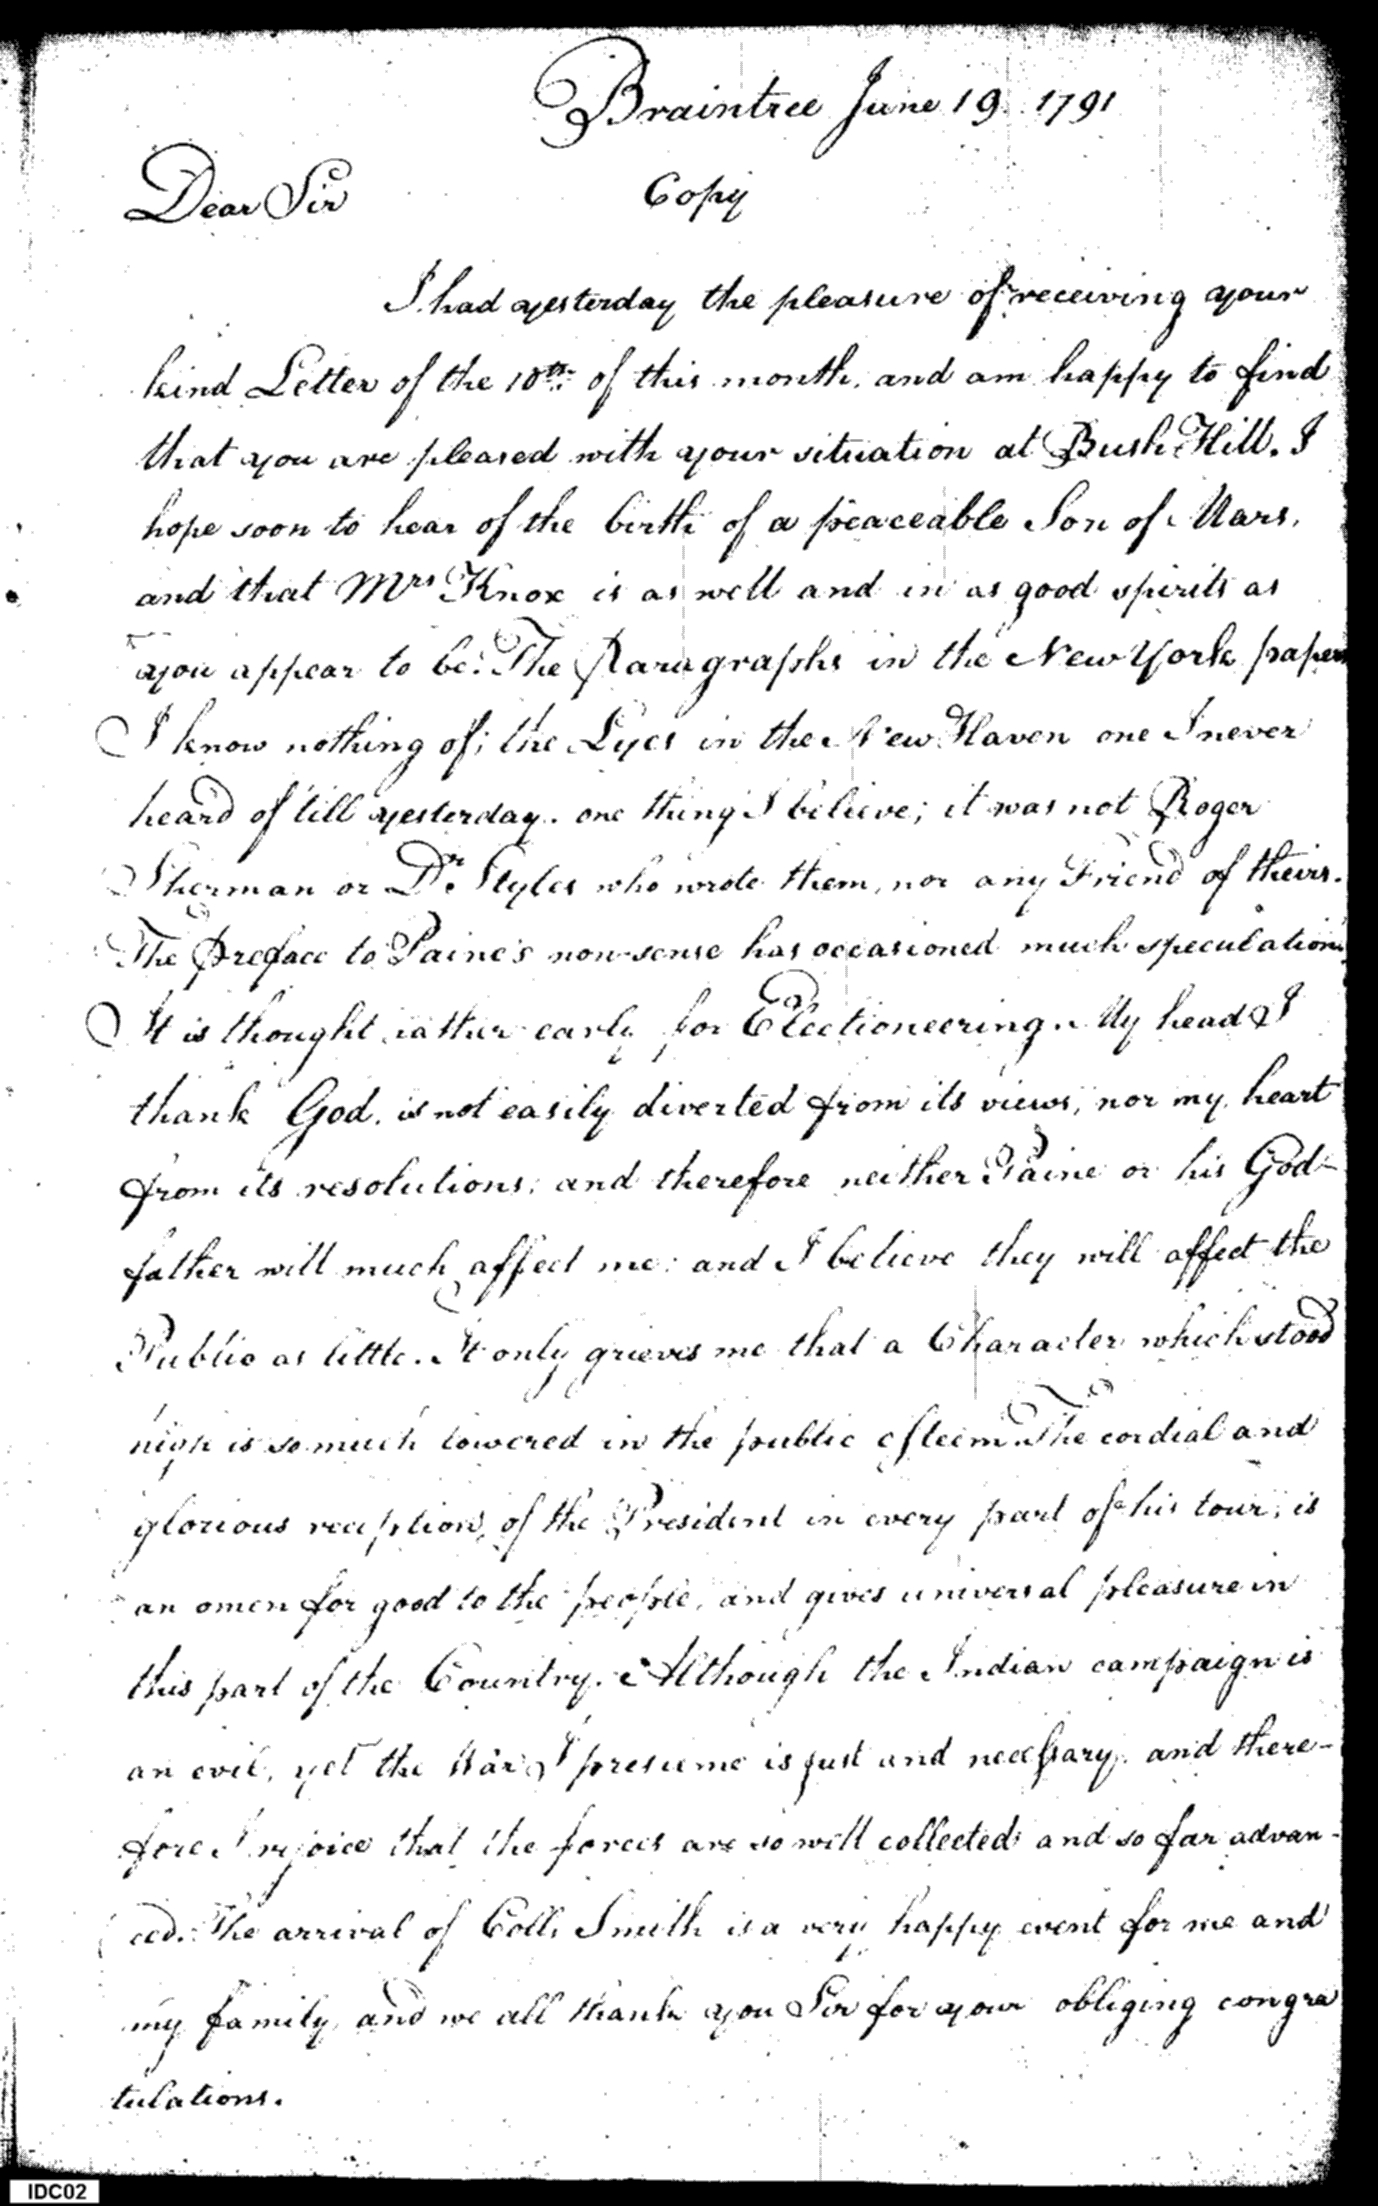 Braintree June 19. 1791
Dear Sir
Copy
I had yesterday the pleasure of receiving your
kind Letter of the 10th. of this month, and am happy to find
that you are pleased with your situation at Bush Hill. I
hope soon to hear of the birth of a peaceable Son of Mars,
and that Mrs Knox is as well and in as good spirits as
you appear to be. The Paragraphs in the New York papers
I know nothing of; the Lyes in the New Haven one I never
heard of till yesterday. one thing I believe; it was not Roger
Sherman or Dr. Styles who wrote them, nor any Friend of theirs.
The Preface to Paine's non-sense has occasioned much speculation.
It is thought rather early for Electioneering. My head I
thank God, is not easily diverted from its views, nor my heart
from its resolutions; and therefore neither Paine or his God-
father will much affect me: and I believe they will affect the
Public as little. It only grieves me that a Character which stood
high is so much lowered in the public esteem. The cordial and
glorious reception, of the President in every part of his tour, is
an omen for good to the people, and gives universal pleasure in
this part of the Country. Although the Indian campaign is
an evil, yet the War I presume is just and necessary, and there-
fore I rejoice that the forces are so well collected and so far advan-
ced. The arrival of Coll. Smith is a very happy event for me and
my family, and we all thank you Sir for your obliging congra
tulations.
IDC02